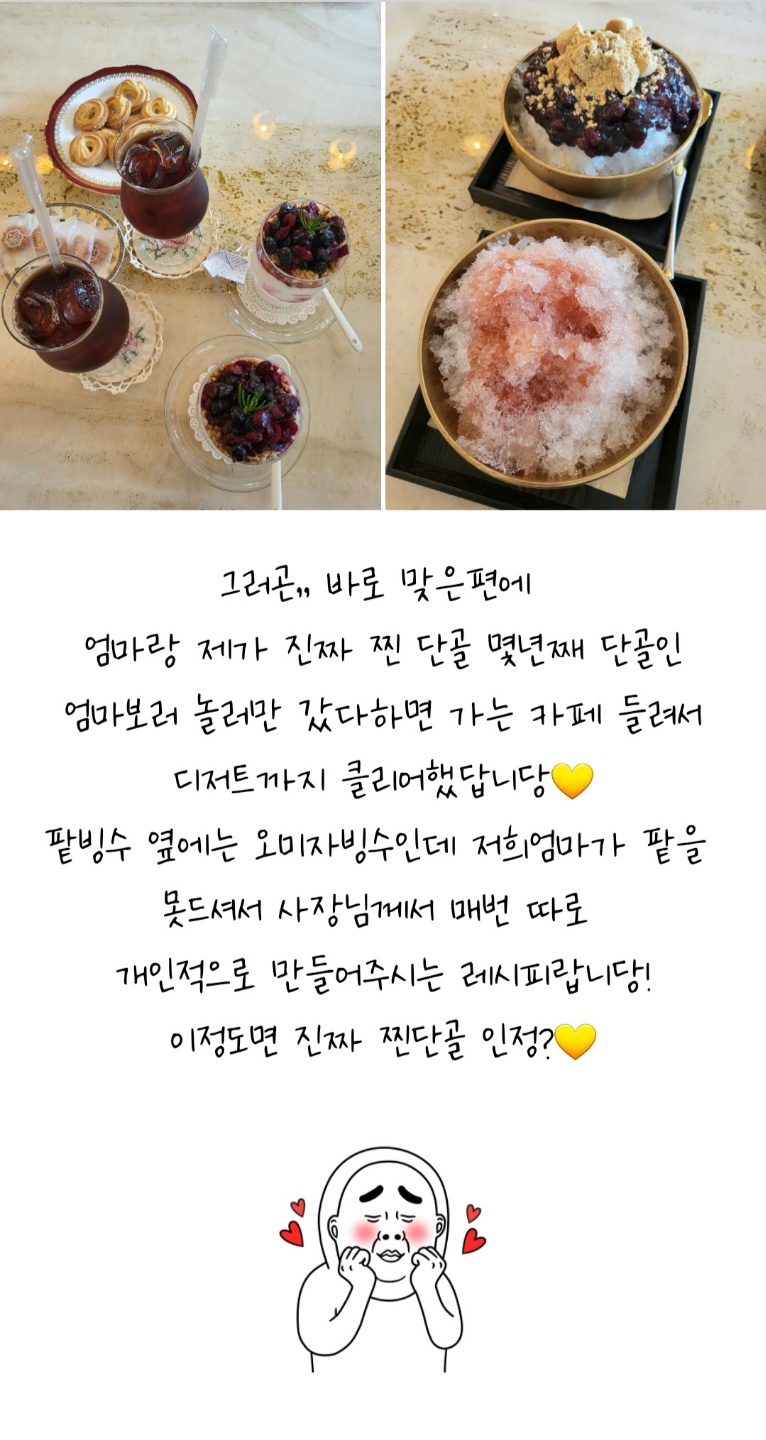 그러곤,, 바로 맞은편에
엄마랑 제가 진짜 찐 단골 몇년째 단골인
엄마보러 놀러만 갔다하면 가는 카페 들려서
디저트까지 클리어했답니당💛
팥빙수 옆에는 오미자빙수인데 저희엄마가 팥을
못드셔서 사장님께서 매번 따로
개인적으로 만들어주시는 레시피랍니당!
이정도면 진짜 찐단골 인정?💛